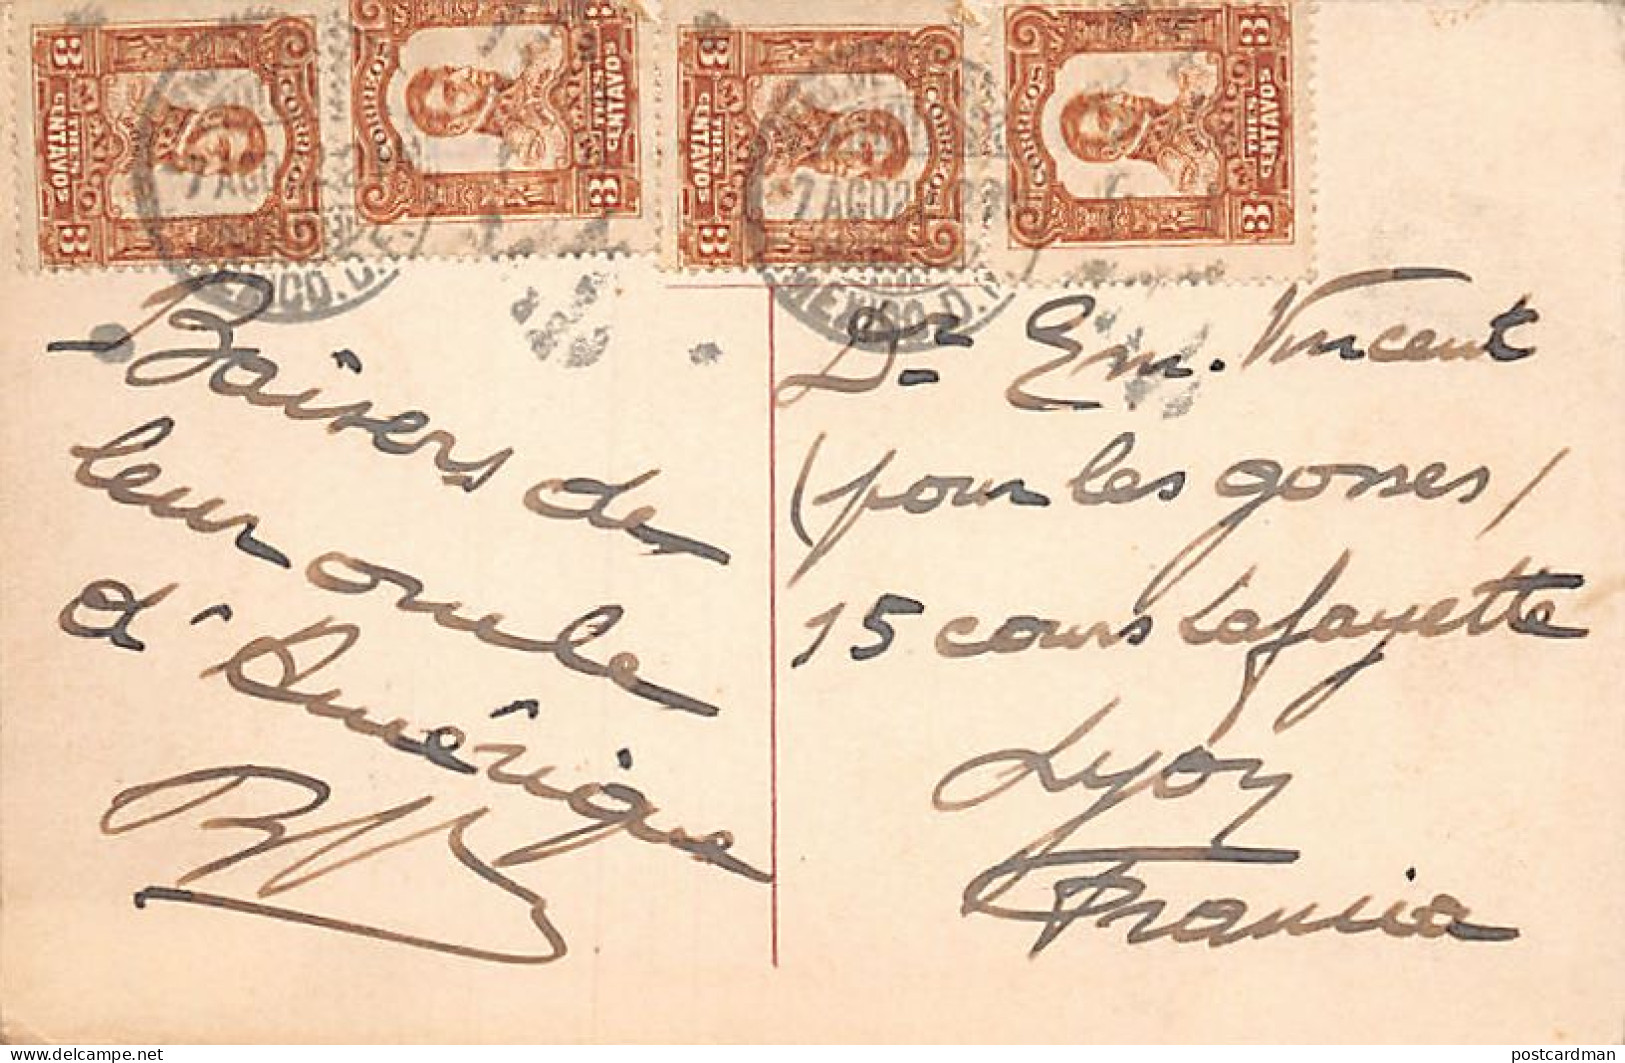 3 CENTAVOS TRES 3 MEXICO CORREOS
CORREOS MEXICO 3 TRES CENTAVOS 3
3 CENTAVOS TRES 3 MEXICO CORREOS
CORREOS MEXICO 3 TRES CENTAVOS 3
7 AGO
MEXICO, D.F.
7 AGO
MEXICO, D.F.
Baisers de
leur oncle
d'Amérique
Dr Em. Vincent
(pour les gosses)
15 cours Lafayette
Lyon
Francia
delcampe.net
postcardman